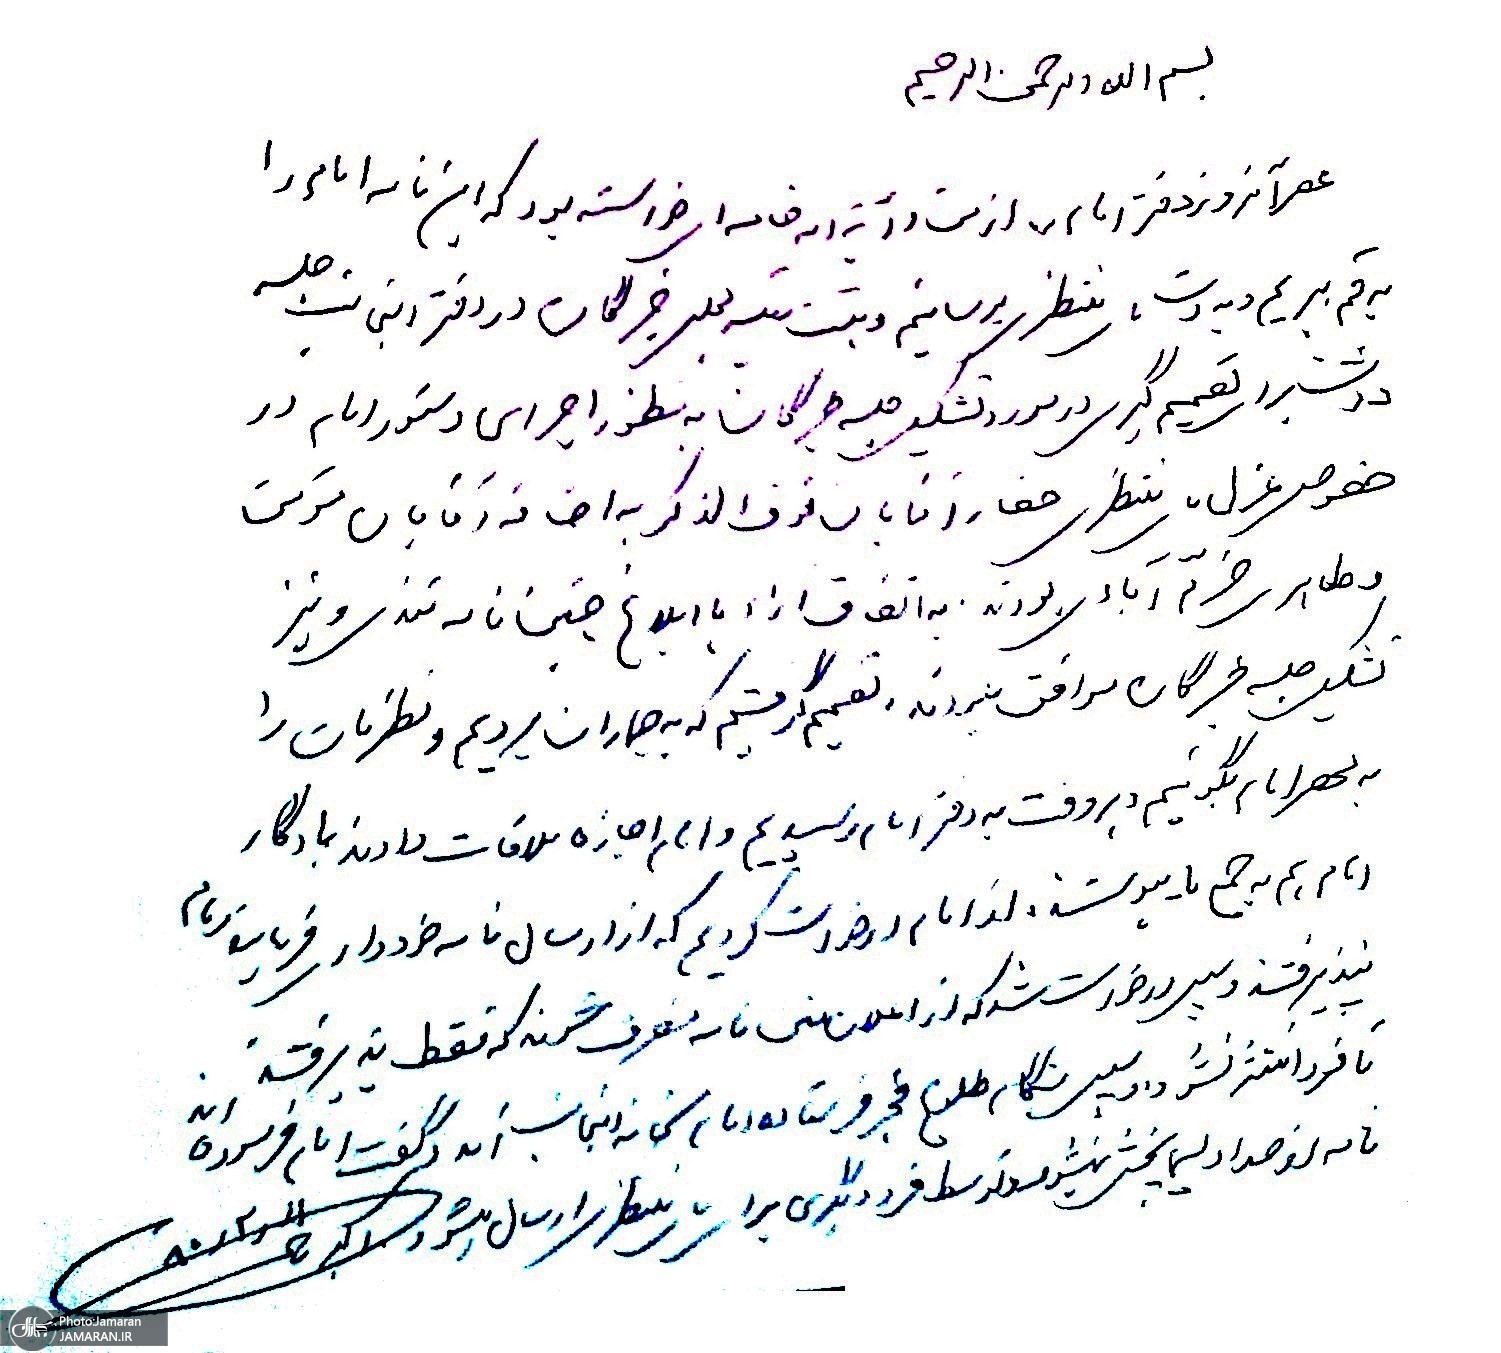 بسم الله الرحمن الرحیم
عصر آنروز دفتر امام، از من و آیة اله خامنه‌ای خواسته بود که این نامه امام را
به قم ببریم و به دست آ. منتظری برسانیم و هیئت رئیسه مجلس خبرگان در دفتر اینجانب جلسه
داشت برای تصمیم گیری در مورد تشکیل جلسه خبرگان به منظور اجرای دستور امام در
خصوص عزل آ. منتظری حضار آقایان فوق الذکر به اضافه آقایان مومن
و طاهری خرّم آبادی بودند. به اتفاق آراء با ابلاغ چنین نامه تندی و نیز
تشکیل جلسه خبرگان موافق نبودند، تصمیم گرفتیم که به جماران برویم و نظرمان را
به محضر امام بگوئیم دیروقت به دفتر امام رسیدیم و امام اجازه ملاقات دادند یادگار
امام هم به جمع ما پیوستند. از امام درخواست کردیم که از ارسال نامه خودداری فرمایند امام
نپذیرفتند و سپس درخواست شد که از اعلان متن نامه منصرف شوند که فقط پذیرفتند
تا فردا منتشر نشود و سپس هنگام طلوع فجر فرستاده امام بخانه اینجانب آمد و گفت امام فرموده‌اند
نامه از صدا و سیما پخش نمیشود و توسط فرد دیگری برای آ. منتظری ارسال میشود. اکبر هاشمی
Photo:Jamaran
JAMARAN.IR